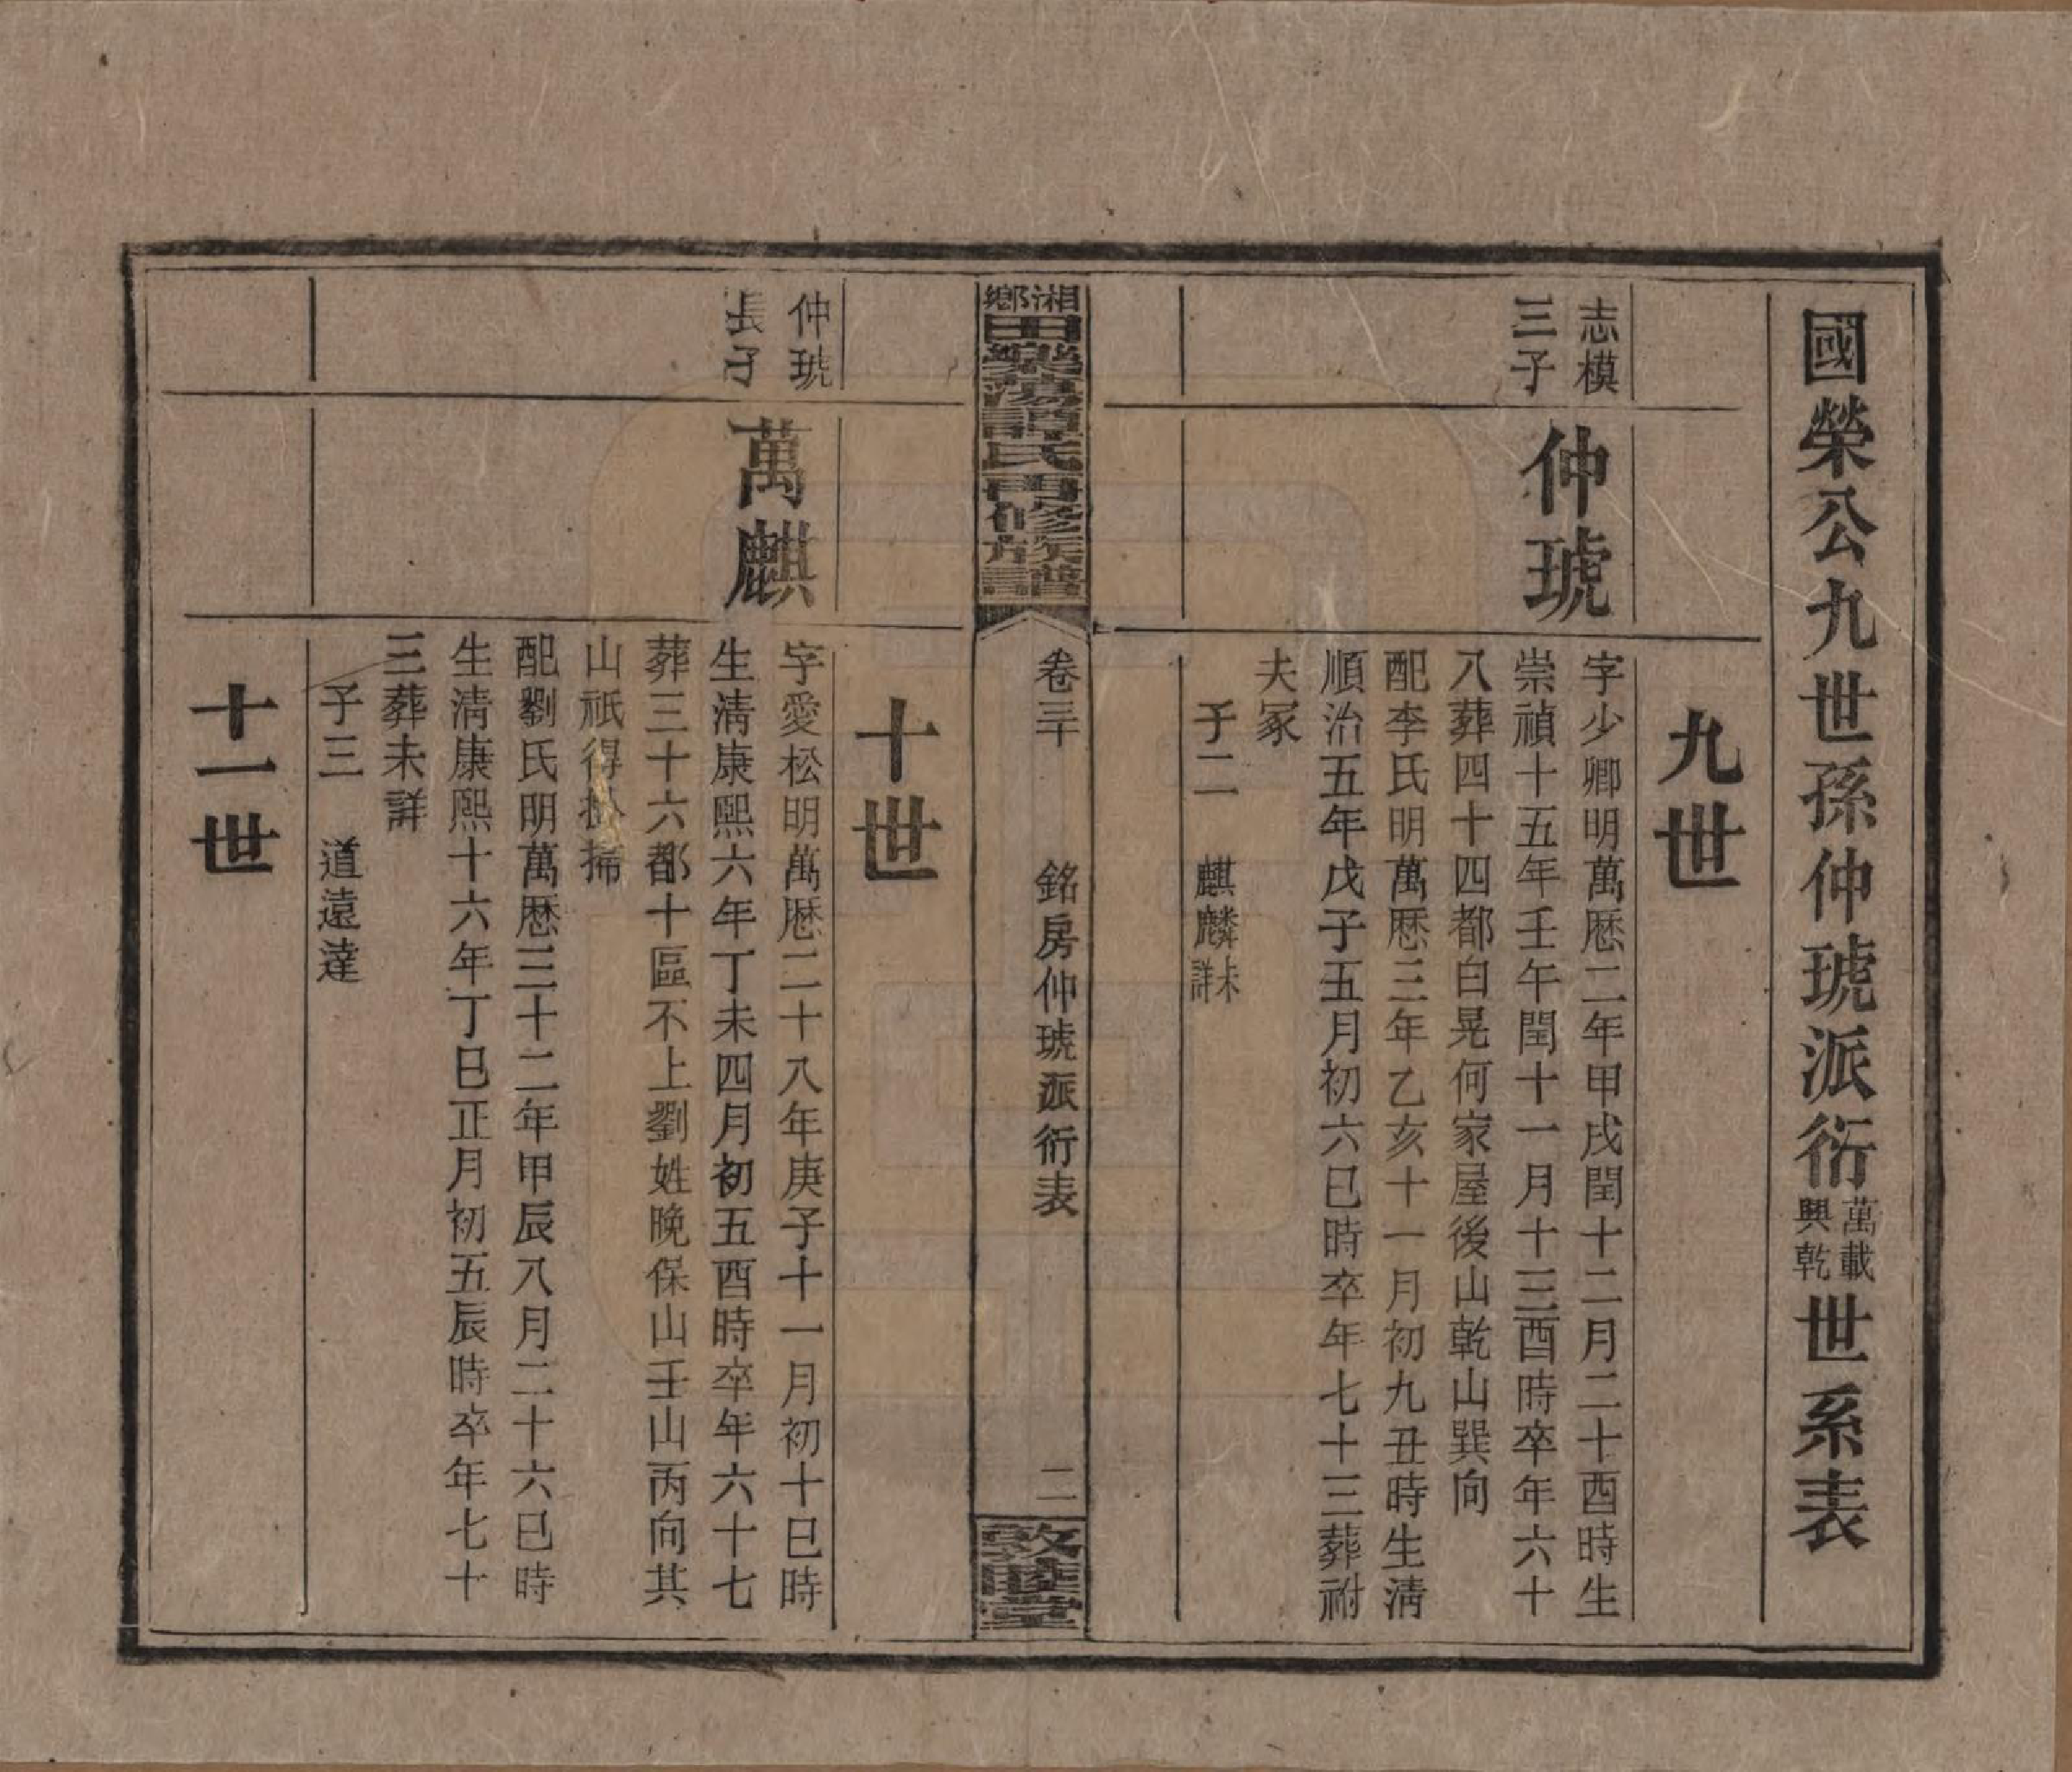 國榮公九世孫仲琥派衍萬載興乾世系表
九世
志模
三子
仲琥
字少卿明萬厯二年甲戌閏十二月二十酉時生
崇禎十五年壬午閏十一月十三酉時卒年六十
八葬四十四都白晃何家屋後山乾山巽向
配李氏明萬厯三年乙亥十一月初九丑時生清
順治五年戊子五月初六巳時卒年七十三葬祔
夫冢
子二 麒麟未詳
湘鄉田樂蕩譚氏再修族譜
卷三十 銘房仲琥派衍表 二
敦睦堂
十世
仲琥
長子
萬麒
字愛松明萬厯二十八年庚子十一月初十巳時
生淸康熙六年丁未四月初五酉時卒年六十七
葬三十六都十區不上劉姓晚保山壬山丙向其
山祇得掛掃
配劉氏明萬厯三十二年甲辰八月二十六巳時
生淸康熙十六年丁巳正月初五辰時卒年七十
三葬未詳
子三 道遠達
十一世